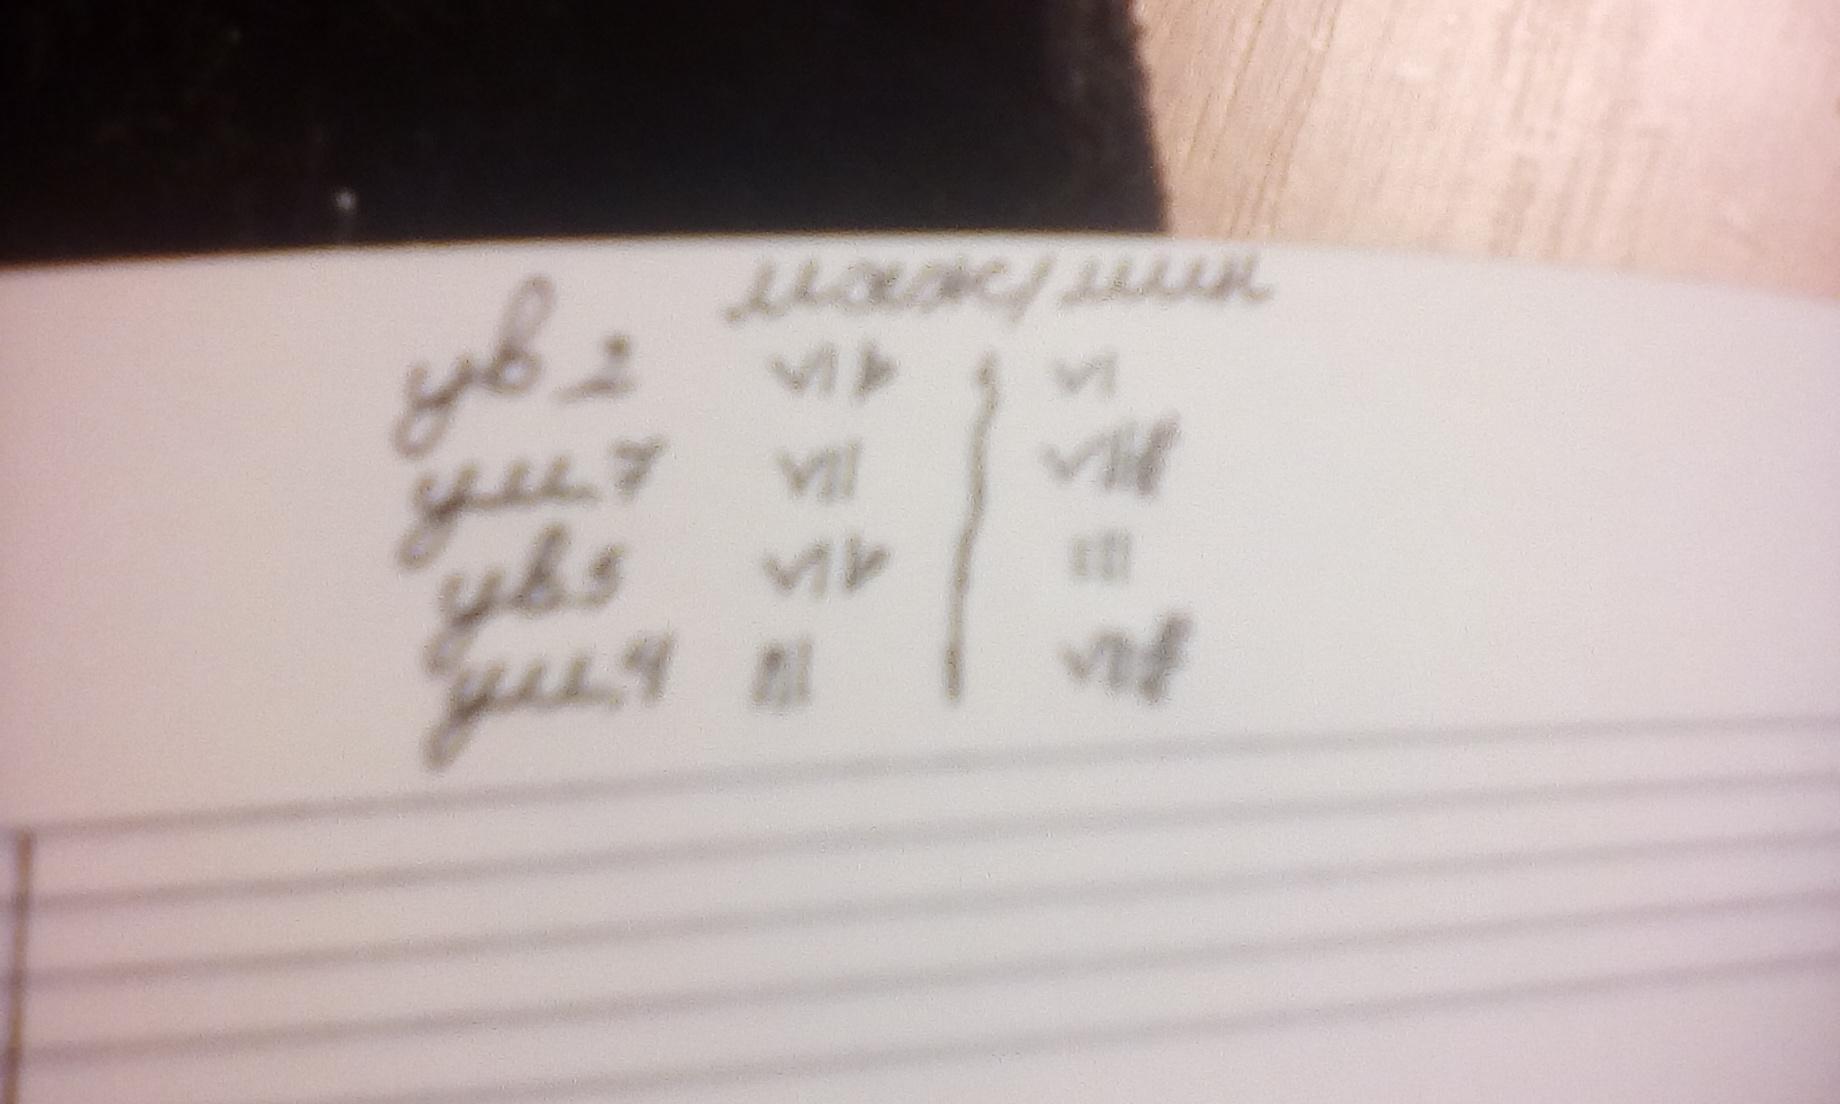 маж/мин
ув 2 VI♭ | VI
ум.7 VII VII♯
ув.5 VI♭ III
ум.4 III VII♯